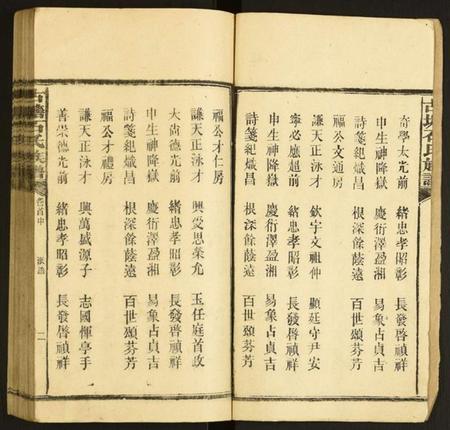 古塘石氏族譜
奇學大光前 緒忠孝昭彰 長發啓禎祥
申生神降嶽 慶衍澤盈湘 易象占貞吉
詩箋紀熾昌 根深餘蔭遠 百世頌芬芳
福公文通房
謙天正泳才 欽宇文祖仲 顯廷守尹安
寧必應超前 緒忠孝昭彰 長發啓禎祥
申生神降嶽 慶衍澤盈湘 易象占貞吉
詩箋紀熾昌 根深餘蔭遠 百世頌芬芳
福公才仁房
謙天正泳才 興受思榮允 玉任庭首政
大尚德光前 緒忠孝昭彰 長發啓禎祥
申生神降嶽 慶衍澤盈湘 易象占貞吉
詩箋紀熾昌 根深餘蔭遠 百世頌芬芳
福公才禮房
謙天正泳才 興萬盛源子 志國惲亭手
善崇德光前 緒忠孝昭彰 長發啓禎祥
古塘石氏族譜 卷首中 派語 二